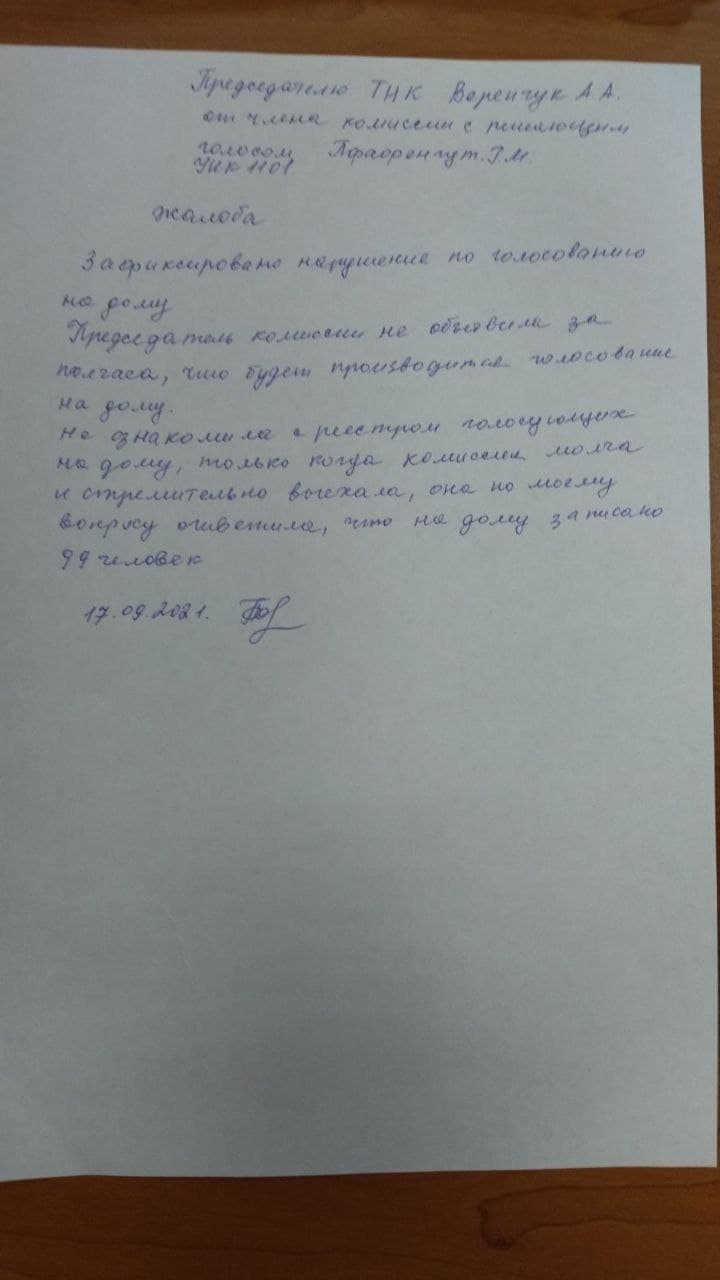 Председателю ТИК Веренчук А.А.
от члена комиссии с решающим
голосом Г.М.
УИК 1101
Жалоба
Зафиксировано нарушение по голосованию
на дому
Председатель комиссии не объявила за
полчаса, что будет производится голосование
на дому.
Не ознакомила с реестром голосующих
на дому, только когда комиссия молча
и стремительно выехала, она по моему
вопросу ответила, что на дому записано
99 человек
17.09.2021.